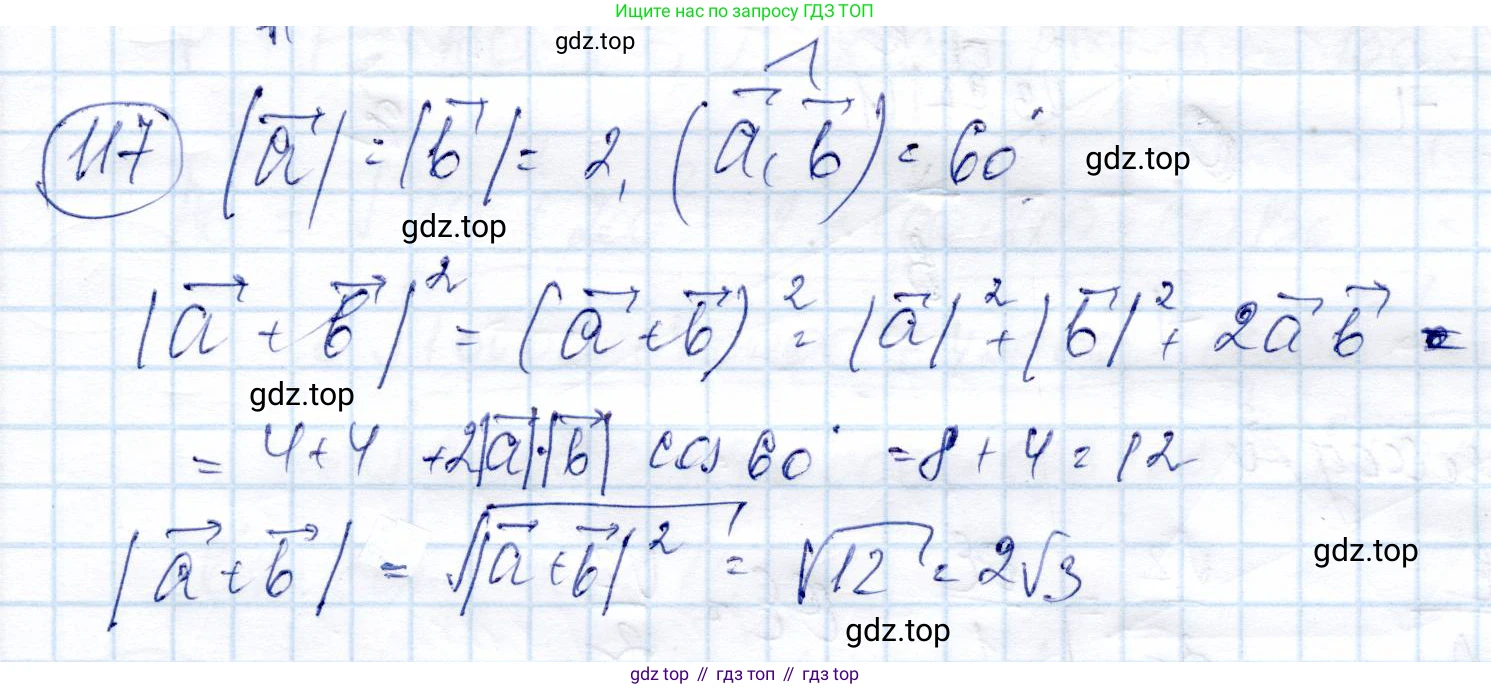 Ищите нас по запросу ГДЗ ТОП
gdz.top
117 |a⃗| = |b⃗| = 2, (a⃗, b⃗)^ = 60°
gdz.top
gdz.top
|a⃗ + b⃗|² = (a⃗ + b⃗)² = |a⃗|² + |b⃗|² + 2a⃗ b⃗ =
gdz.top
= 4+4 +2|a⃗|·|b⃗| cos 60° = 8 + 4 = 12
|a⃗ + b⃗| = √|a⃗ + b⃗|² = √12 = 2√3
gdz.top
gdz.top
gdz top // гдз топ // гдз top